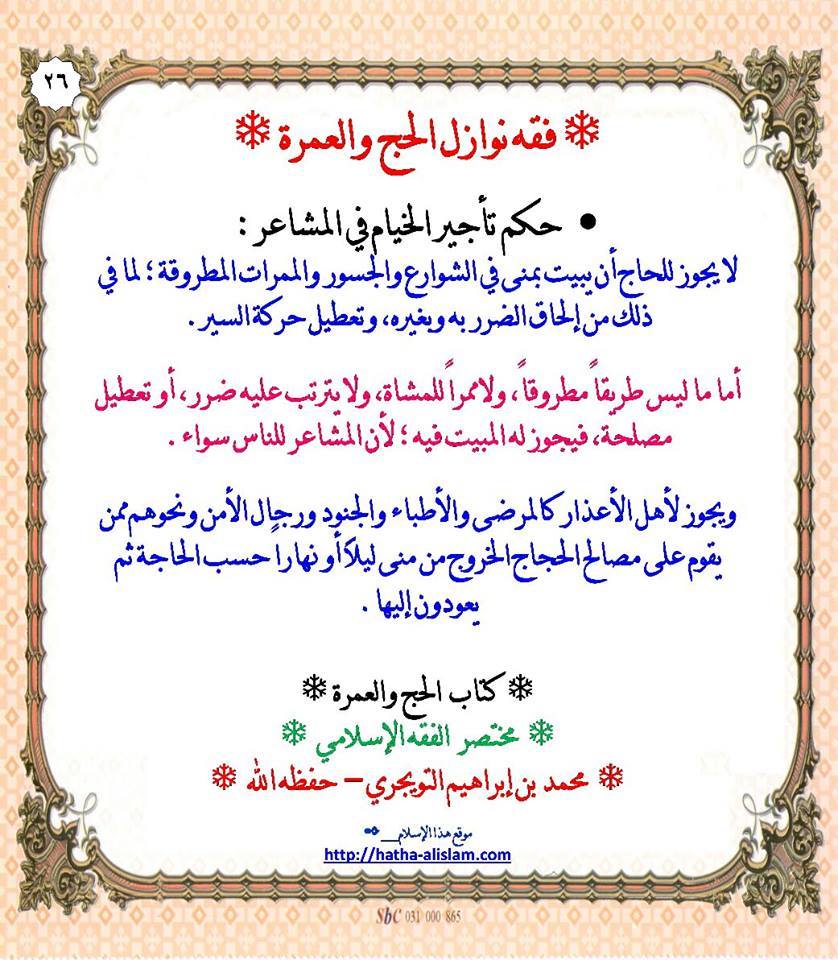 ٢٦
❄ فقه نوازل الحج والعمرة ❄
• حكم تأجير الخيام في المشاعر :
لا يجوز للحاج أن يبيت بمنى في الشوارع والجسور والممرات المطروقة ؛ لما في
ذلك من إلحاق الضرر به وبغيره، وتعطيل حركة السير .
أما ما ليس طريقاً مطروقاً، ولا ممراً للمشاة، ولا يترتب عليه ضرر، أو تعطيل
مصلحة، فيجوز له المبيت فيه ؛ لأن المشاعر للناس سواء .
ويجوز لأهل الأعذار كالمرضى والأطباء والجنود ورجال الأمن ونحوهم ممن
يقوم على مصالح الحجاج الخروج من منى ليلاً أو نهاراً حسب الحاجة ثم
يعودون إليها .
❄ كتاب الحج والعمرة ❄
❄ مختصر الفقه الإسلامي ❄
❄ محمد بن إبراهيم التويجري – حفظه الله ❄
موقع هذا الإسلام__
http://hatha-alislam.com
SbC 031 000 865